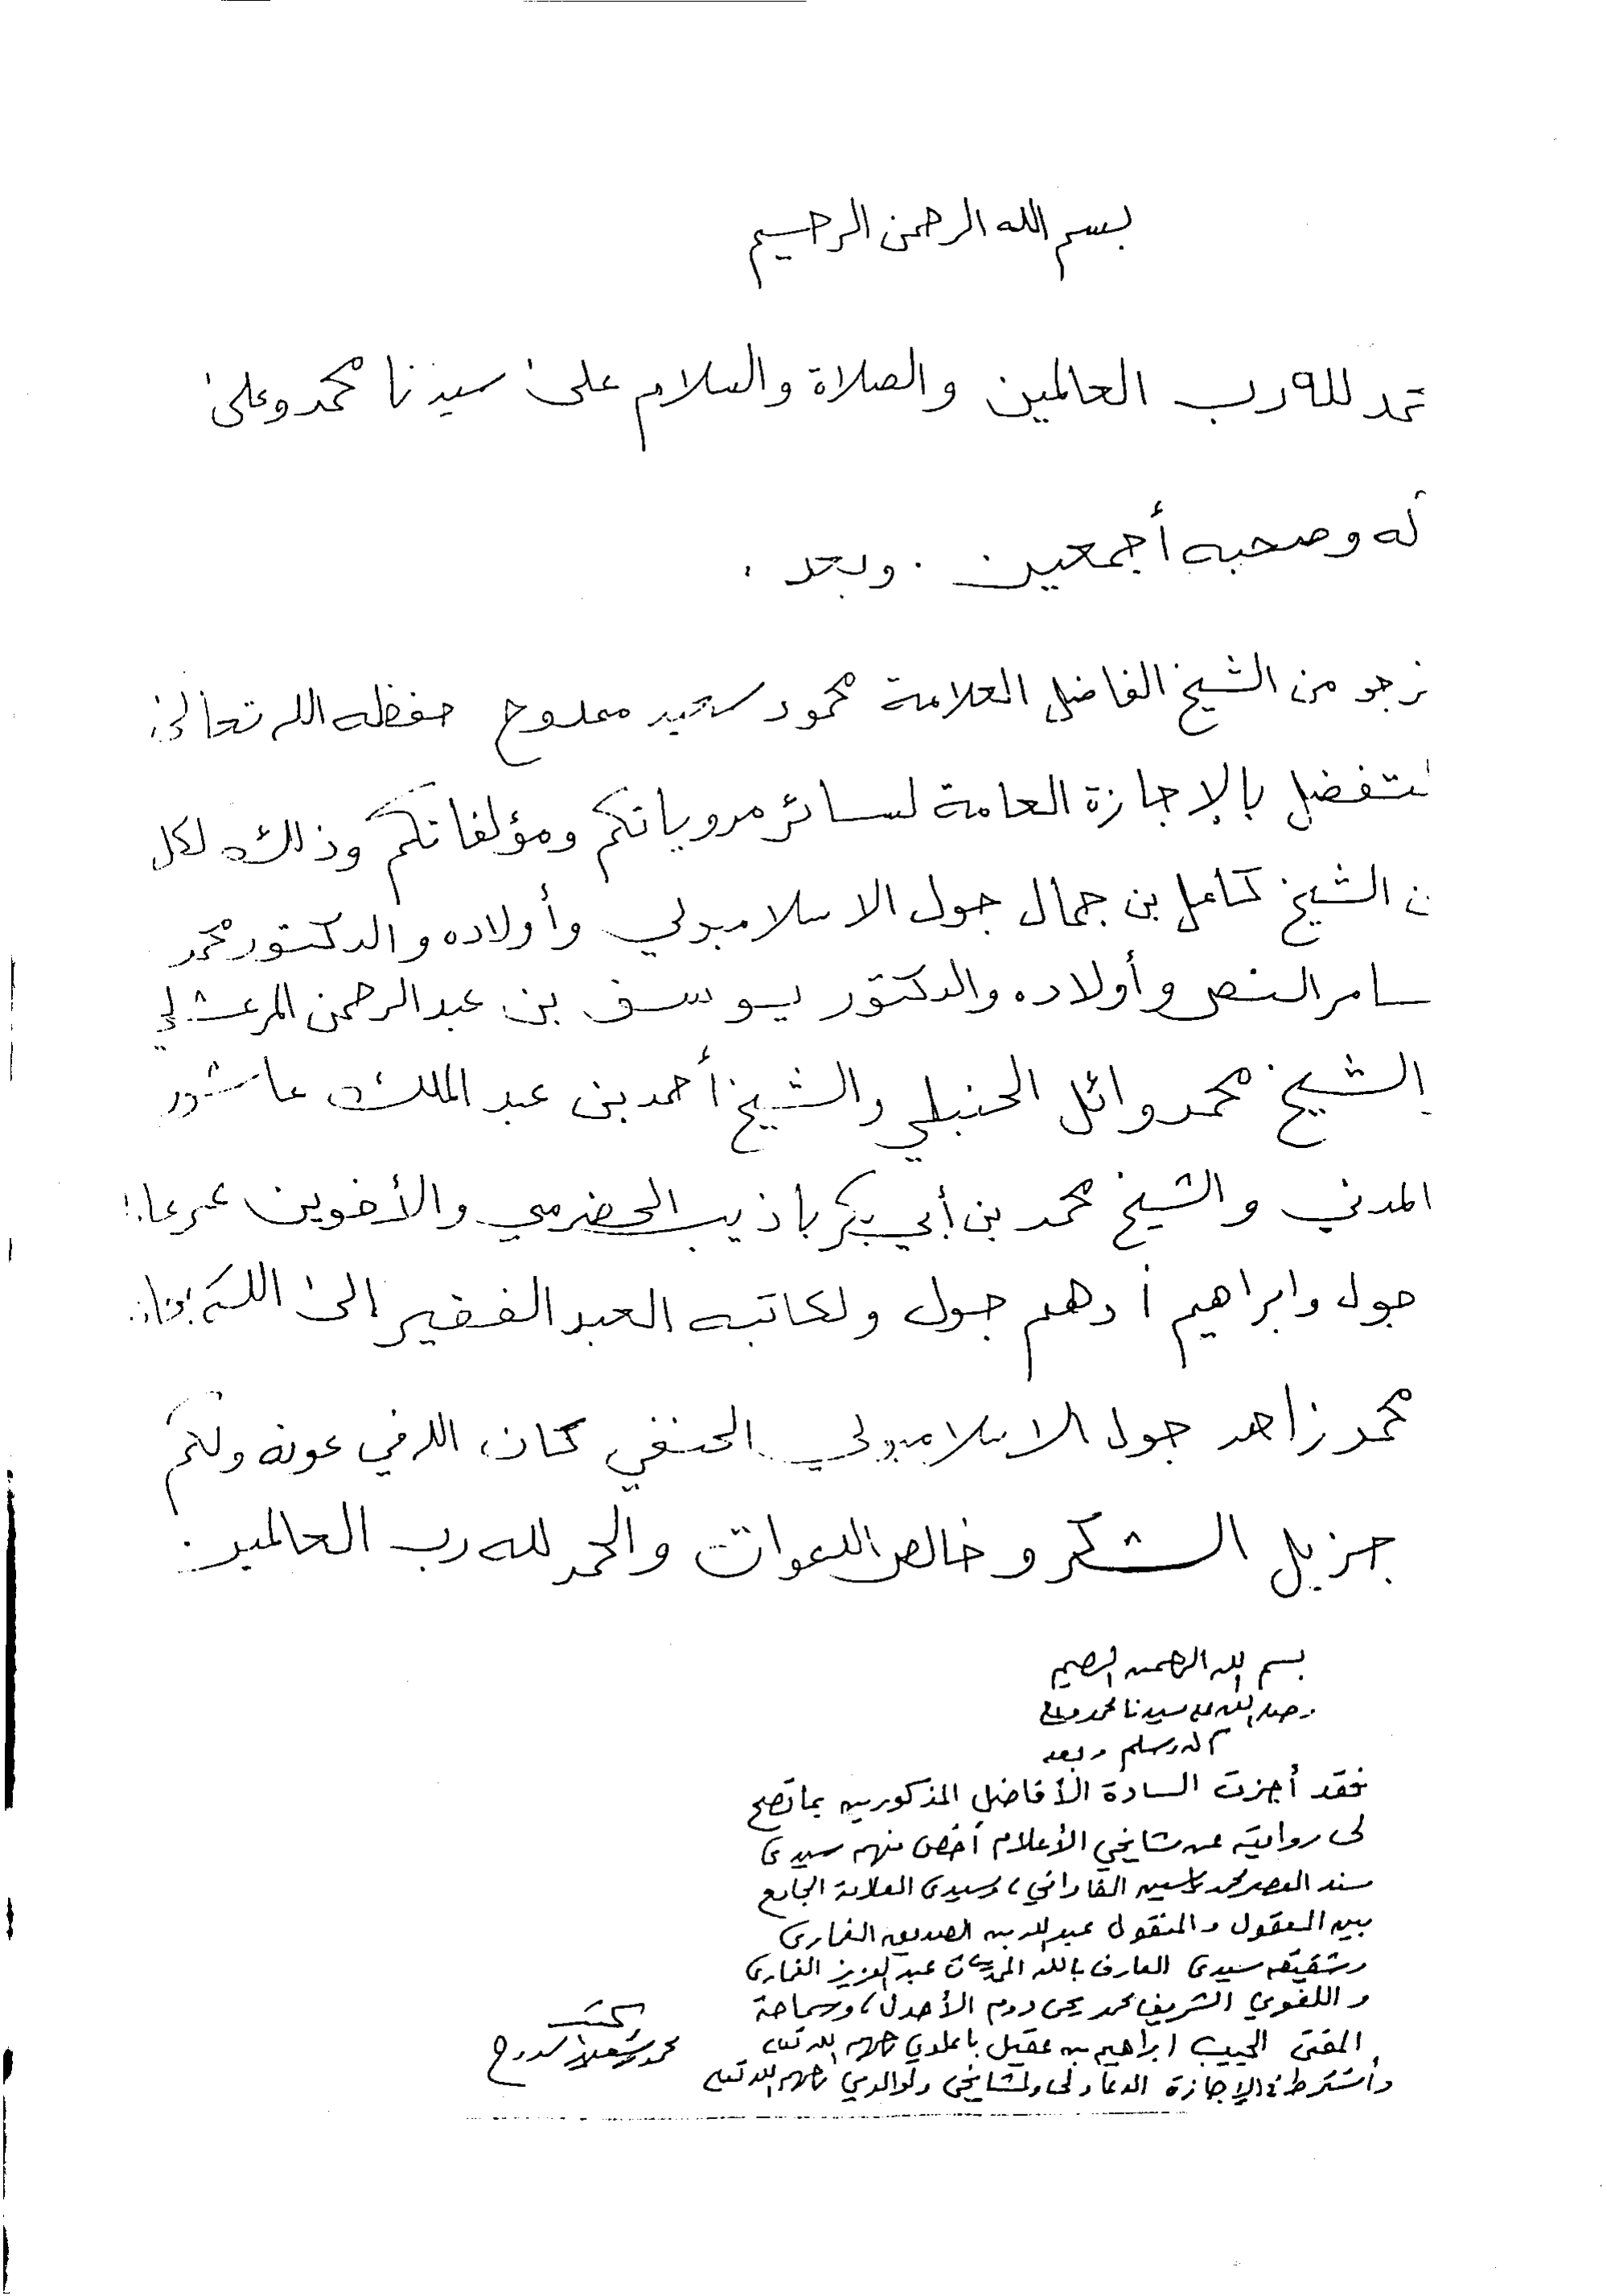 بسم الله الرحمن الرحيم
حمد لله رب العالمين والصلاة والسلام على سيدنا محمد وعلى
آله وصحبه أجمعين . وبعد ،
نرجو من الشيخ الفاضل العلامة محمود سعيد ممدوح حفظه الله تعالى
لتفضل بالإجازة العامة لسائر مروياتكم ومؤلفاتكم وذلك لكل
ن الشيخ كامل بن جمال جول الاسلامبولي وأولاده والدكتور محمد
سامر النص وأولاده والدكتور يوسف بن عبد الرحمن المرعشلي
الشيخ محمد وائل الحنبلي والشيخ أحمد بن عبد الملك عاشور
المدني والشيخ محمد بن أبي بكر باذيب الحضرمي والأخوين عمر
جول وابراهيم أدهم جول ولكاتبه العبد الفقير الى الله
محمد زاهد جول الاسلامبولي الحنفي كان الله في عونه ولكم
جزيل الشكر وخالص الدعوات والحمد لله رب العالمين .
بسم الله الرحمن الرحيم
وصلى الله على سيدنا محمد وعلى
آله وسلم وبعد
فقد أجزت السادة الأفاضل المذكورين بما تصح
لى روايته عن مشايخي الأعلام أخص منهم سيدى
مسند العصر محمد ياسين الفاداني ، وسيدى العلامة الجامع
بين المعقول والمنقول عبد الله بن الصديق الغمارى
وشقيقه سيدى العارف بالله المحدث عبد العزيز الغمارى
واللغوي الشريف محمد يحيى دوم الأهدل ، وسماحة
المفتى الحبيب ابراهيم بن عقيل باعلوي رحمهم الله تعالى
وأشترط في الإجازة الدعاء لى ولمشايخي ولوالدي رحمهم الله تعالى
كتبه
محمود سعيد ممدوح